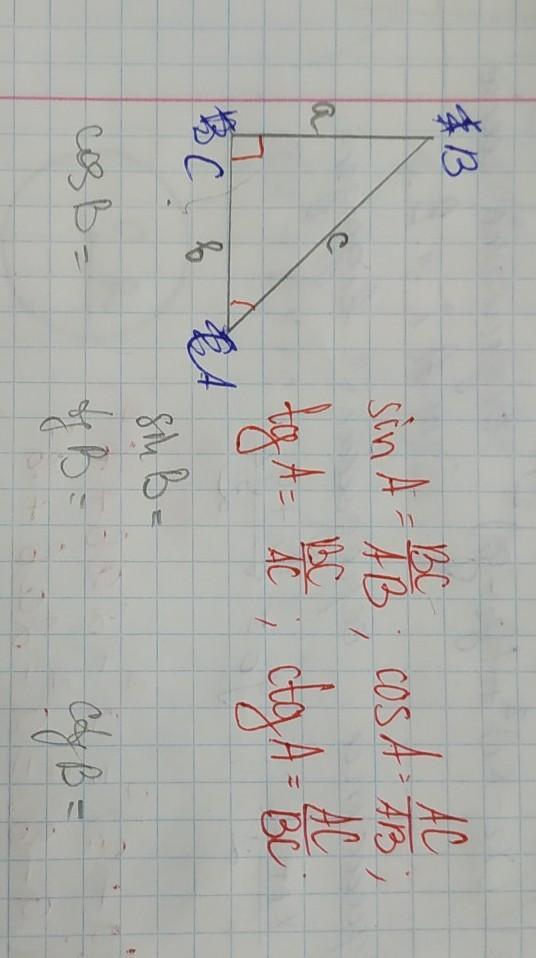 B
a
c
C
b
A
sin A = BC/AB; cos A = AC/AB;
tg A = BC/AC; ctg A = AC/BC.
sin B =
cos B =
tg B =
ctg B =